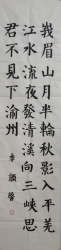 峩眉山月半輪秋影入平羌
江水流夜發清溪向三峽思
君不見下渝州
李